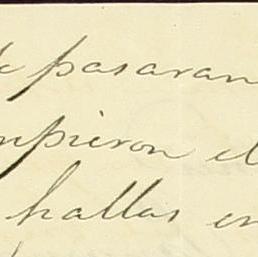 pasaran
mpieron el
hallar en